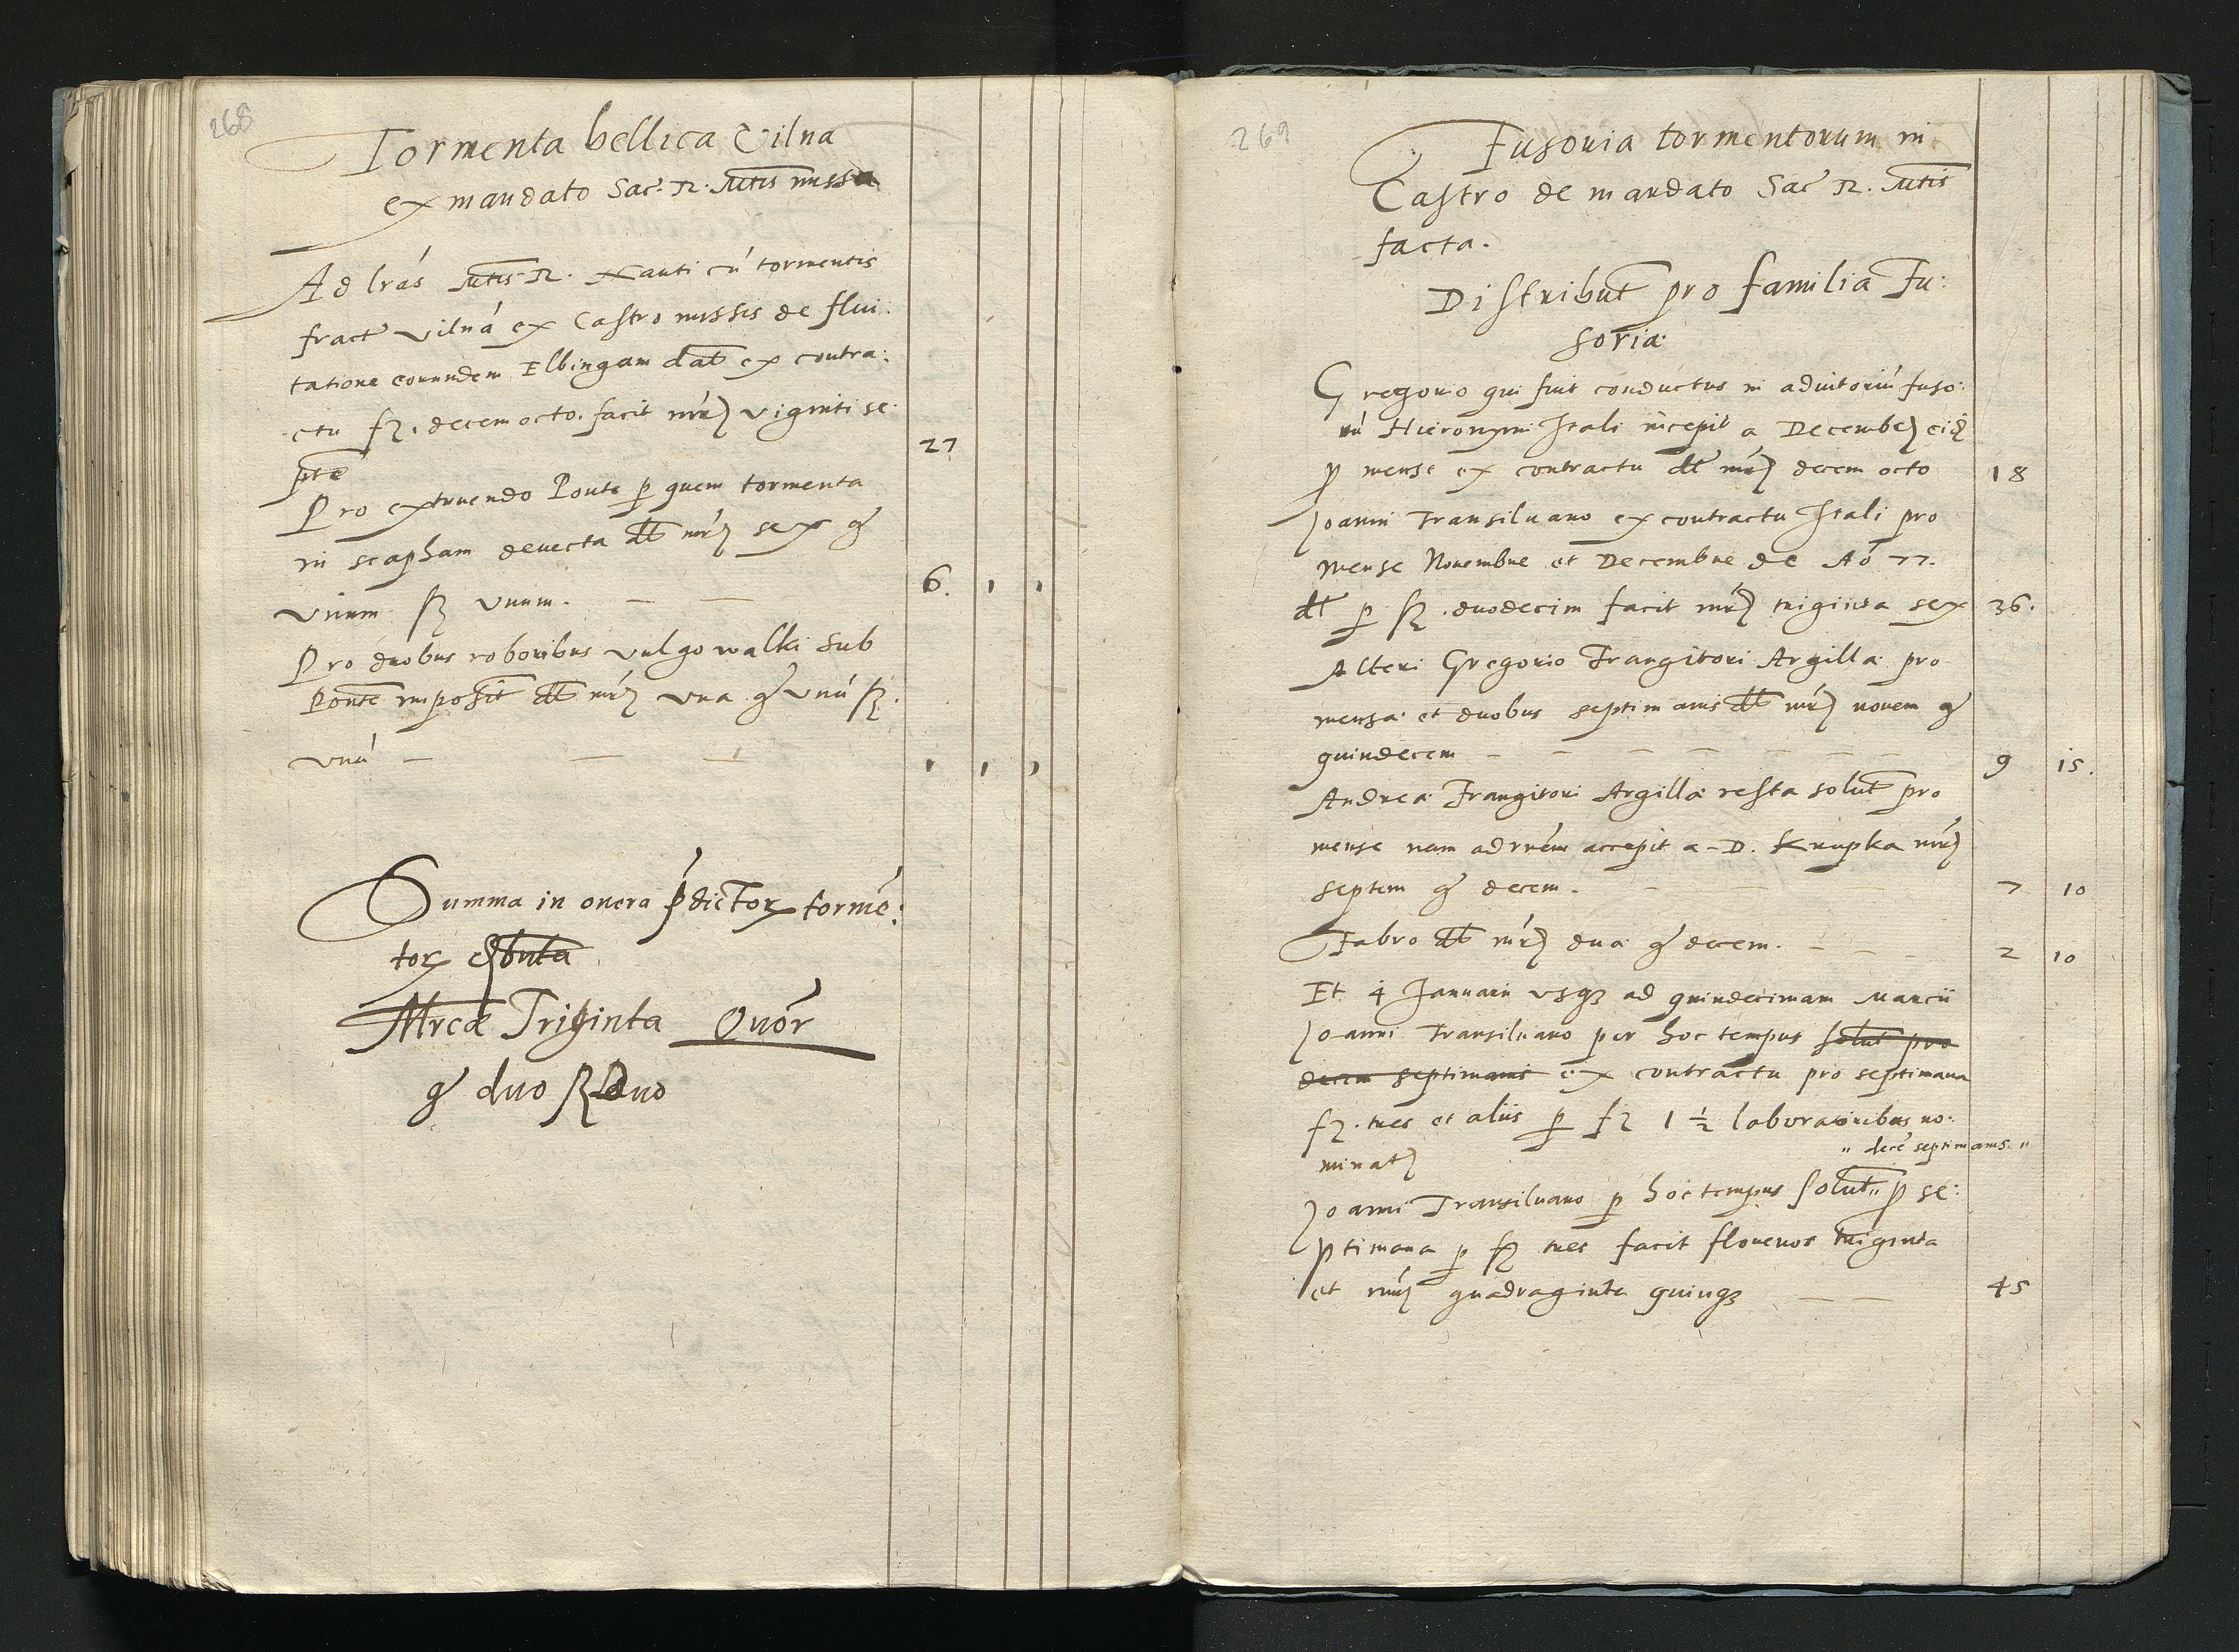 268
Tormenta bellica Vilna
ex mandato Sac. R. Mtis missa
Ad lrás Mtis R. Xanti cú tormentis
fract Vilná ex Castro missis de flui:
tatione eorundem Elbingam dat ex contra:
ctu fl. decem octo. facit mr͂ viginti se:
pte 27
Pro extruendo Ponte p quem tormenta
in scapham devecta dt mr͂ sex gr
vnum ss vnum. 6. 1 1
Pro duobus roboribus vulgo walki sub
Ponte imposit dt mr͂ vna gr vnú ss.
vnú 1 1 1
Summa in onera p̃dictor tormé:
tor
Mrcae Triginta Quór
gr duo ss Duo
269
Fusoria tormentorum in
Castro de mandato Sac R. Mtis
facta.
Distribut pro familia Fu:
soria
Gregorio qui fuit conductus in adiutoriú fuso:
rú Hieronymi Itali incepit a Decemb eid
p mense ex contractu dt mr͂ decem octo 18
Joanni Transiluano ex contractu Itali pro
mense Nouembre et Decembre de Aó 77.
dt p fl. duodecim facit mr͂ triginta sex 36.
Alteri Gregorio Frangitori Argilla pro
mensa et duobus septimanis dt mr͂ nouem gr
quindecem 9 15.
Andrea Frangitori Argilla resta solut pro
mense nam accepit a D. Krupka mr͂
septem gr decem. 7 10
Fabro dt mr͂ dua gr decem. 2 10
Et 4 Januarii vsq ad quindecimam Marcii
Joanni Transiluano per hoc tempus solut pro
decem septimanis ex contractu pro septimana
fl. tres et aliis p fl 1 ½ laboratoribus no:
" decé septimanis "
minat
Joanni Transiluano p hoc tempus solut" p se:
ptimana p fl tres facit florenos triginta
et mr͂ quadraginta quinq 45